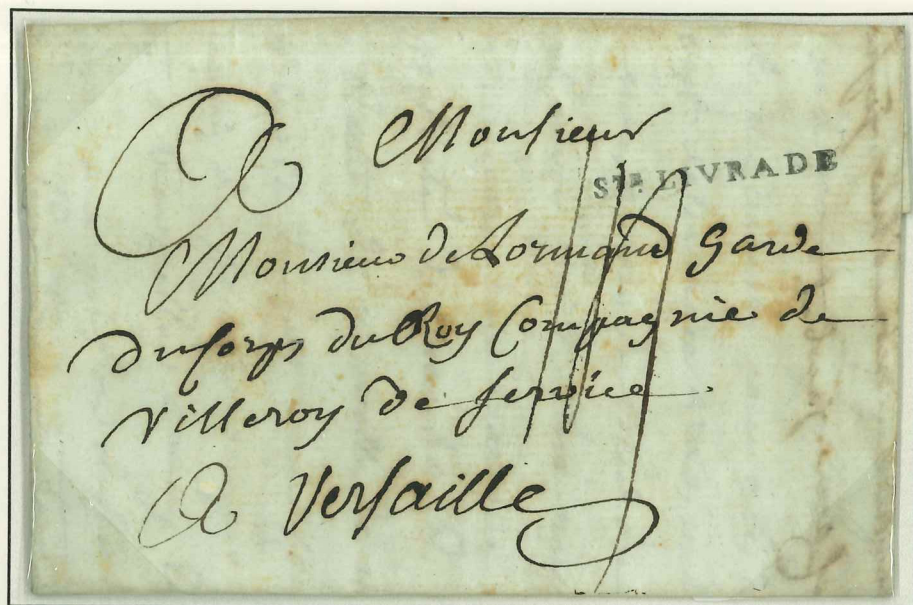 A Monsieur
STE. LIVRADE
Monsieur de Lormand Garde
du Corps du Roy Compagnie de
Villeroy de service
A Versaille